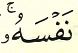 نَفْسَهُۥ ۚ